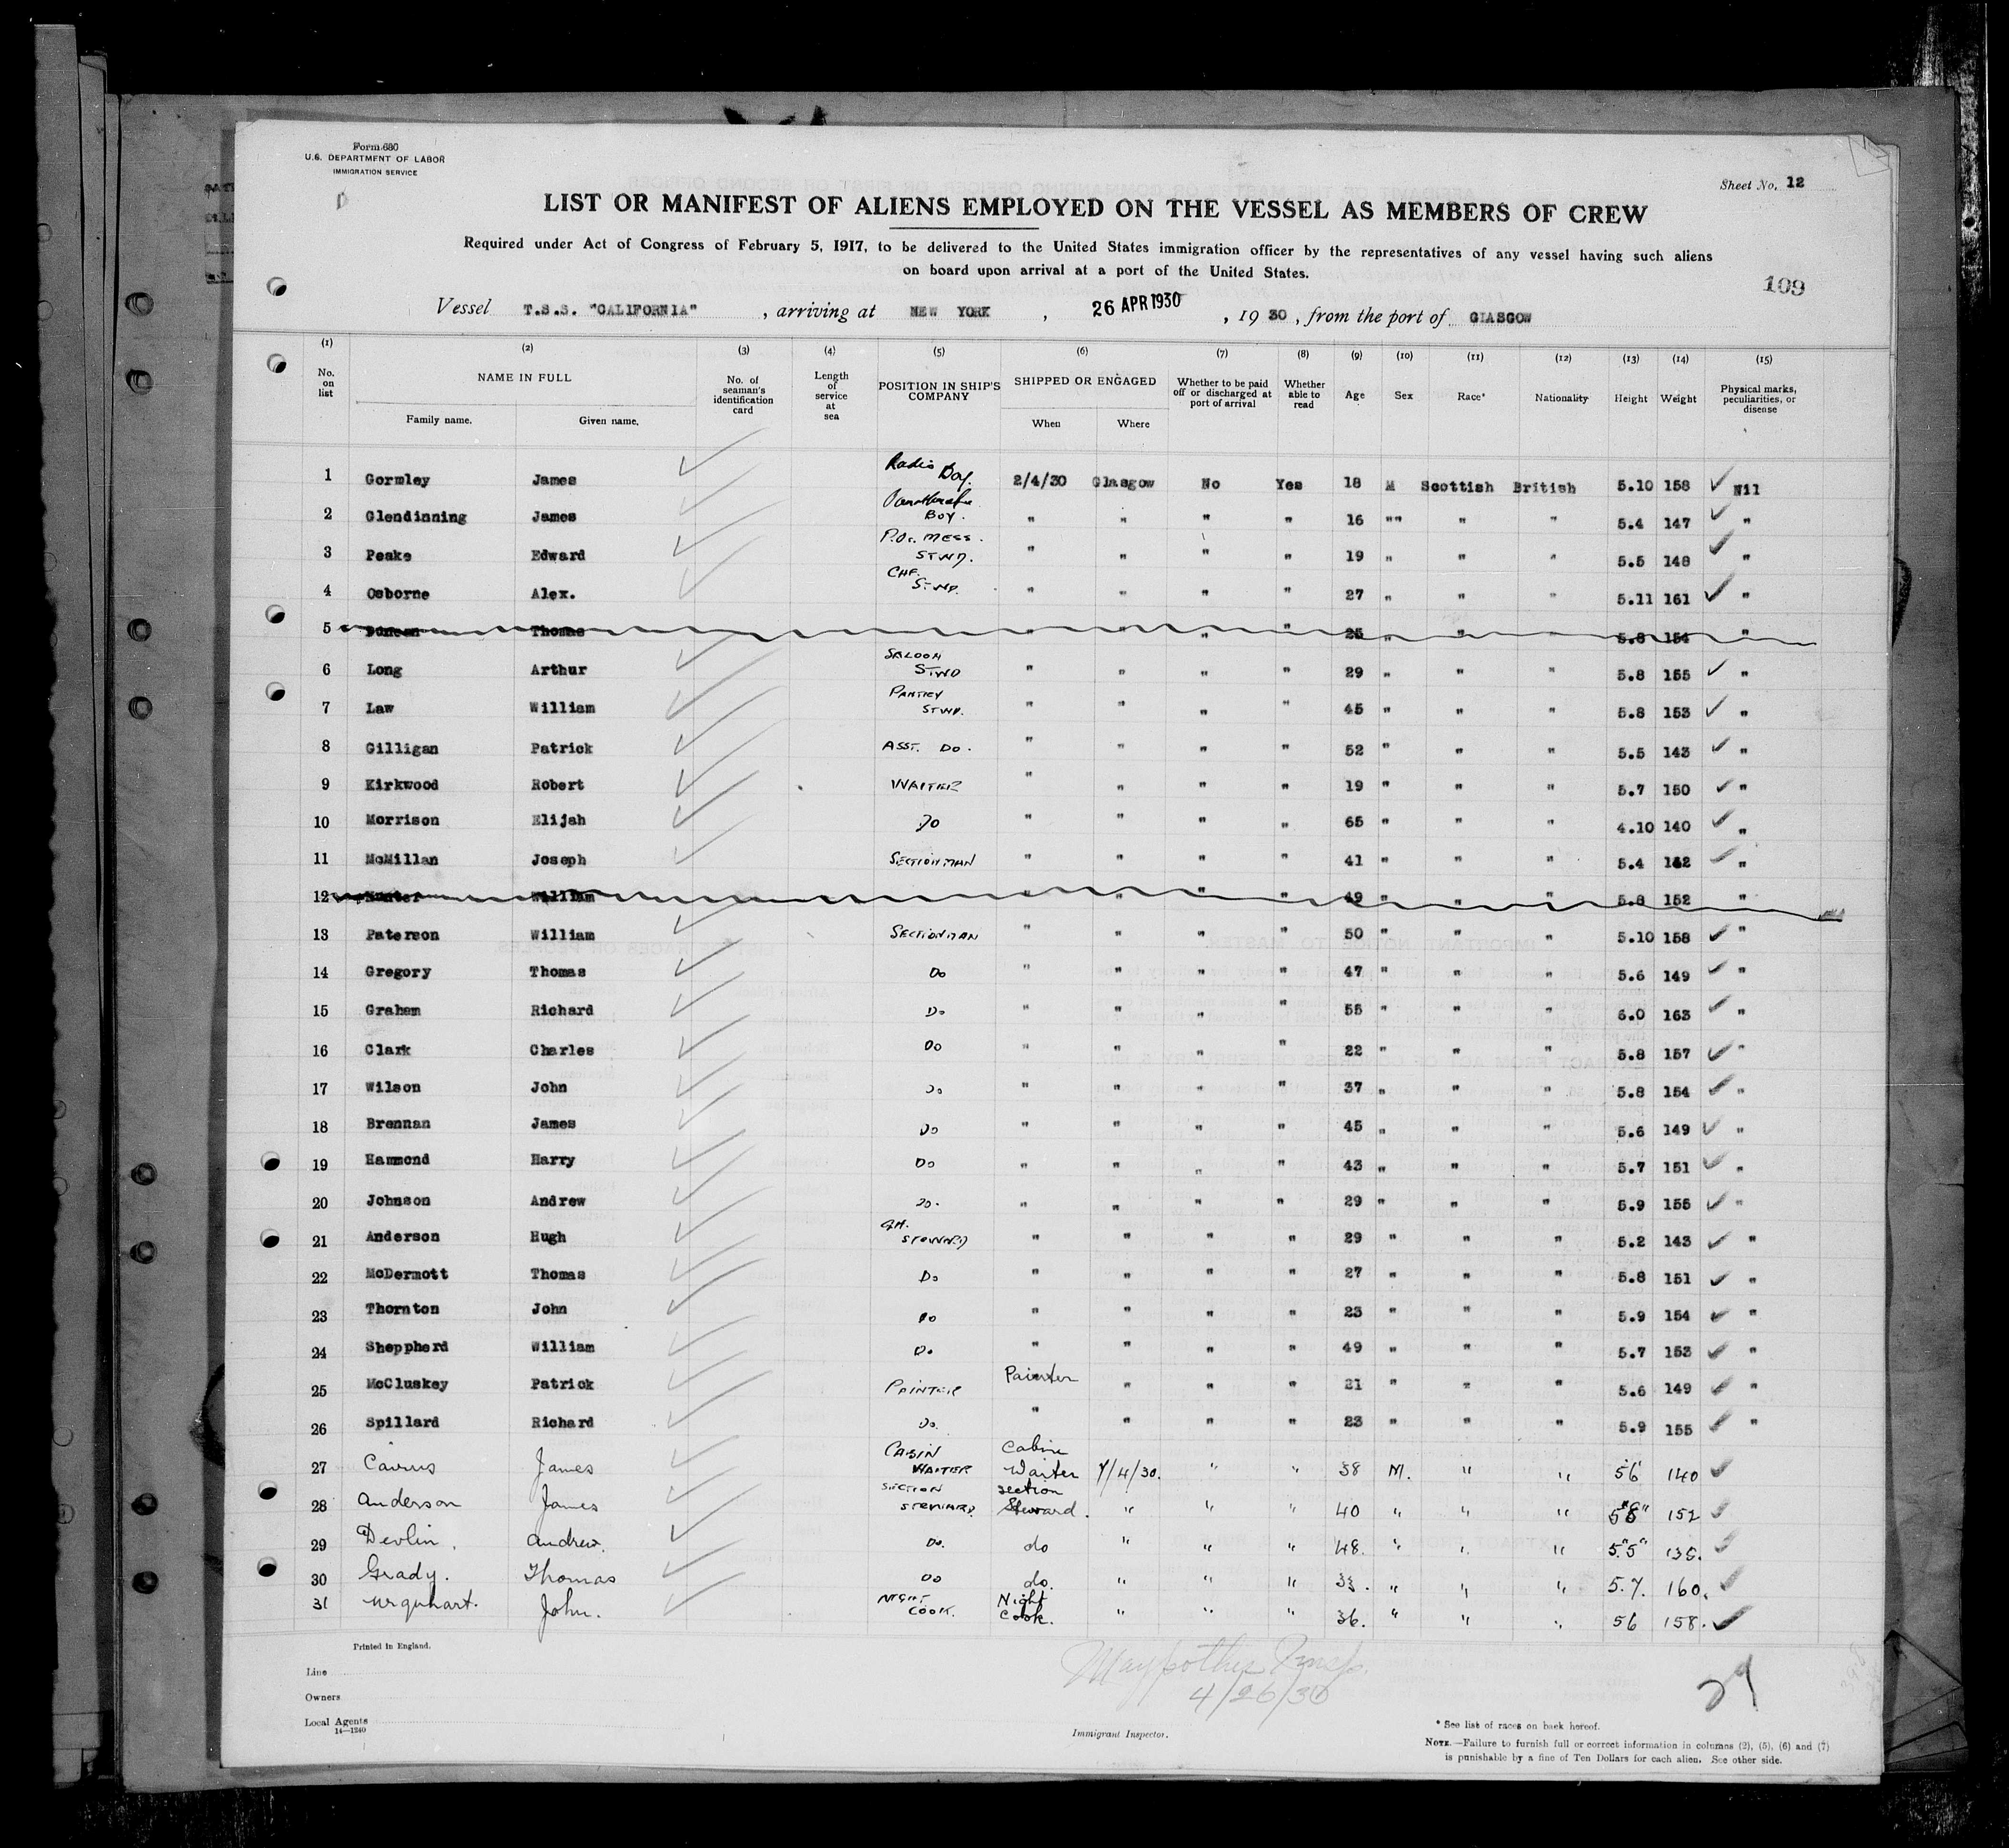 Form 680
U.S. DEPARTMENT OF LABOR
IMMIGRATION SERVICE
Sheet No. 12
LIST OR MANIFEST OF ALIENS EMPLOYED ON THE VESSEL AS MEMBERS OF CREW
Required under Act of Congress of February 5, 1917, to be delivered to the United States immigration officer by the representatives of any vessel having such aliens
on board upon arrival at a port of the United States.
109
Vessel T.S.S. "CALIFORNIA", arriving at NEW YORK, 26 APR 1930, 19 30, from the port of GLASGOW
(1) (2) (3) (4) (5) (6) (7) (8) (9) (10) (11) (12) (13) (14) (15)
No. on list NAME IN FULL Family name. Given name. No. of seaman's identification card Length of service at sea POSITION IN SHIP'S COMPANY SHIPPED OR ENGAGED When Where Whether to be paid off or discharged at port of arrival Whether able to read Age Sex Race* Nationality Height Weight Physical marks, peculiarities, or disease
1 Gormley James Radio Boy. 2/4/30 Glasgow No Yes 18 M Scottish British 5.10 158 Nil
2 Glendinning James Boy. " " " " 16 "" " " 5.4 147 "
3 Peake Edward P.Or. MESS. STWD. " " " " 19 " " " 5.5 148 "
4 Osborne Alex. CHF. STWD. " " " " 27 " " " 5.11 161 "
5 Thomas " " " " 25 " " " 5.8 154 "
6 Long Arthur SALOON STWD " " " " 29 " " " 5.8 155 "
7 Law William PANTRY STWD. " " " " 45 " " " 5.8 153 "
8 Gilligan Patrick ASST. DO. " " " " 52 " " " 5.5 143 "
9 Kirkwood Robert WAITER " " " " 19 " " " 5.7 150 "
10 Morrison Elijah DO " " " " 65 " " " 4.10 140 "
11 McMillan Joseph SECTIONMAN " " " " 41 " " " 5.4 "
12 Hunter William " " " " 49 " " " 5.8 152 "
13 Paterson William SECTIONMAN " " " " 50 " " " 5.10 158 "
14 Gregory Thomas Do " " " " 47 " " " 5.6 149 "
15 Graham Richard Do " " " " 55 " " " 6.0 163 "
16 Clark Charles Do " " " " 22 " " " 5.8 157 "
17 Wilson John Do " " " " 37 " " " 5.8 154 "
18 Brennan James Do " " " " 45 " " " 5.6 149 "
19 Hammond Harry Do " " " " 43 " " " 5.7 151 "
20 Johnson Andrew Do. " " " " 29 " " " 5.9 155 "
21 Anderson Hugh STEWARD " " " " 29 " " " 5.2 143 "
22 McDermott Thomas Do " " " " 27 " " " 5.8 151 "
23 Thornton John Do " " " " 23 " " " 5.9 154 "
24 Sheppherd William Do. " " " " 49 " " " 5.7 153 "
25 McCluskey Patrick PAINTER Painter " " " 21 " " " 5.6 149 "
26 Spillard Richard Do. " " " " 23 " " " 5.9 155 "
27 Cairns James CABIN WAITER Cabin Waiter 7/4/30. " " 38 M. " " 5 6 140
28 Anderson James SECTION STEWARD. Section Steward. " " " 40 " " " 5 8" 152
29 Devlin. Andrew. Do. do " " " 48. " " " 5.5" 135.
30 Grady. Thomas Do do. " " " 33. " " " 5.7. 160.
31 Urquhart. John. NIGHT COOK. Night Cook. " " " 36. " " " 5 6 158.
Printed in England.
Line
Owners
Local Agents
14—1240
4/26/30
Immigrant Inspector.
29
* See list of races on back hereof.
NOTE.—Failure to furnish full or correct information in columns (2), (5), (6) and (7)
is punishable by a fine of Ten Dollars for each alien. See other side.